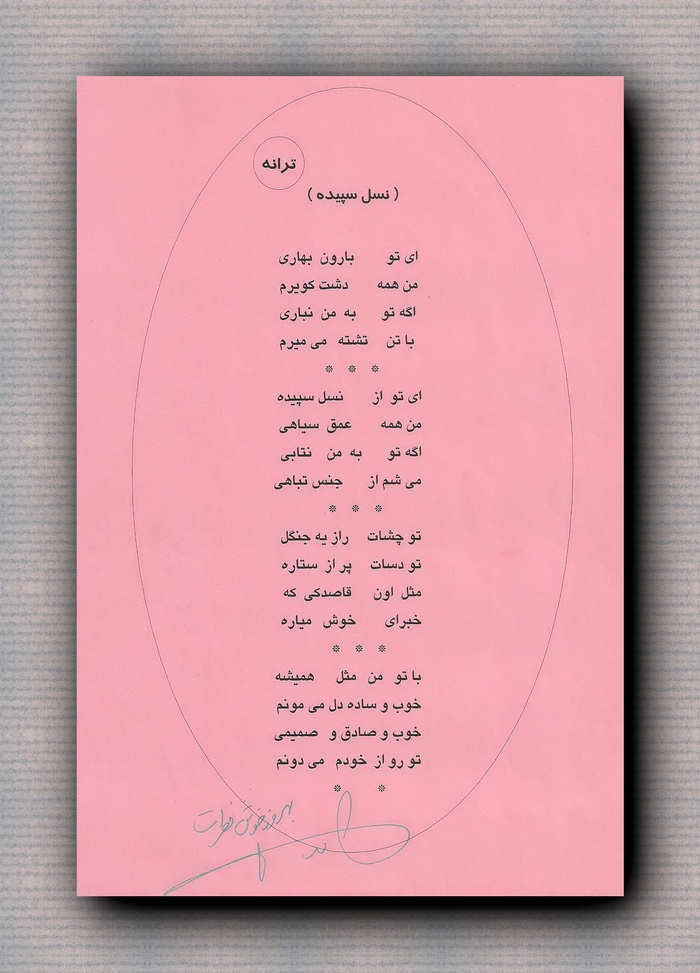 ترانه
( نسل سپیده )
ای تو بارون بهاری
من همه دشت کویرم
اگه تو به من نباری
با تن تشنه می میرم
❊ ❊ ❊
ای تو از نسل سپیده
من همه عمق سیاهی
اگه تو به من نتابی
می شم از جنس تباهی
❊ ❊ ❊
تو چشات راز یه جنگل
تو دسات پر از ستاره
مثل اون قاصدکی که
خبرای خوش میاره
❊ ❊ ❊
با تو من مثل همیشه
خوب و ساده دل می مونم
خوب و صادق و صمیمی
تو رو از خودم می دونم
❊ ❊
بهروز خوش فطرت